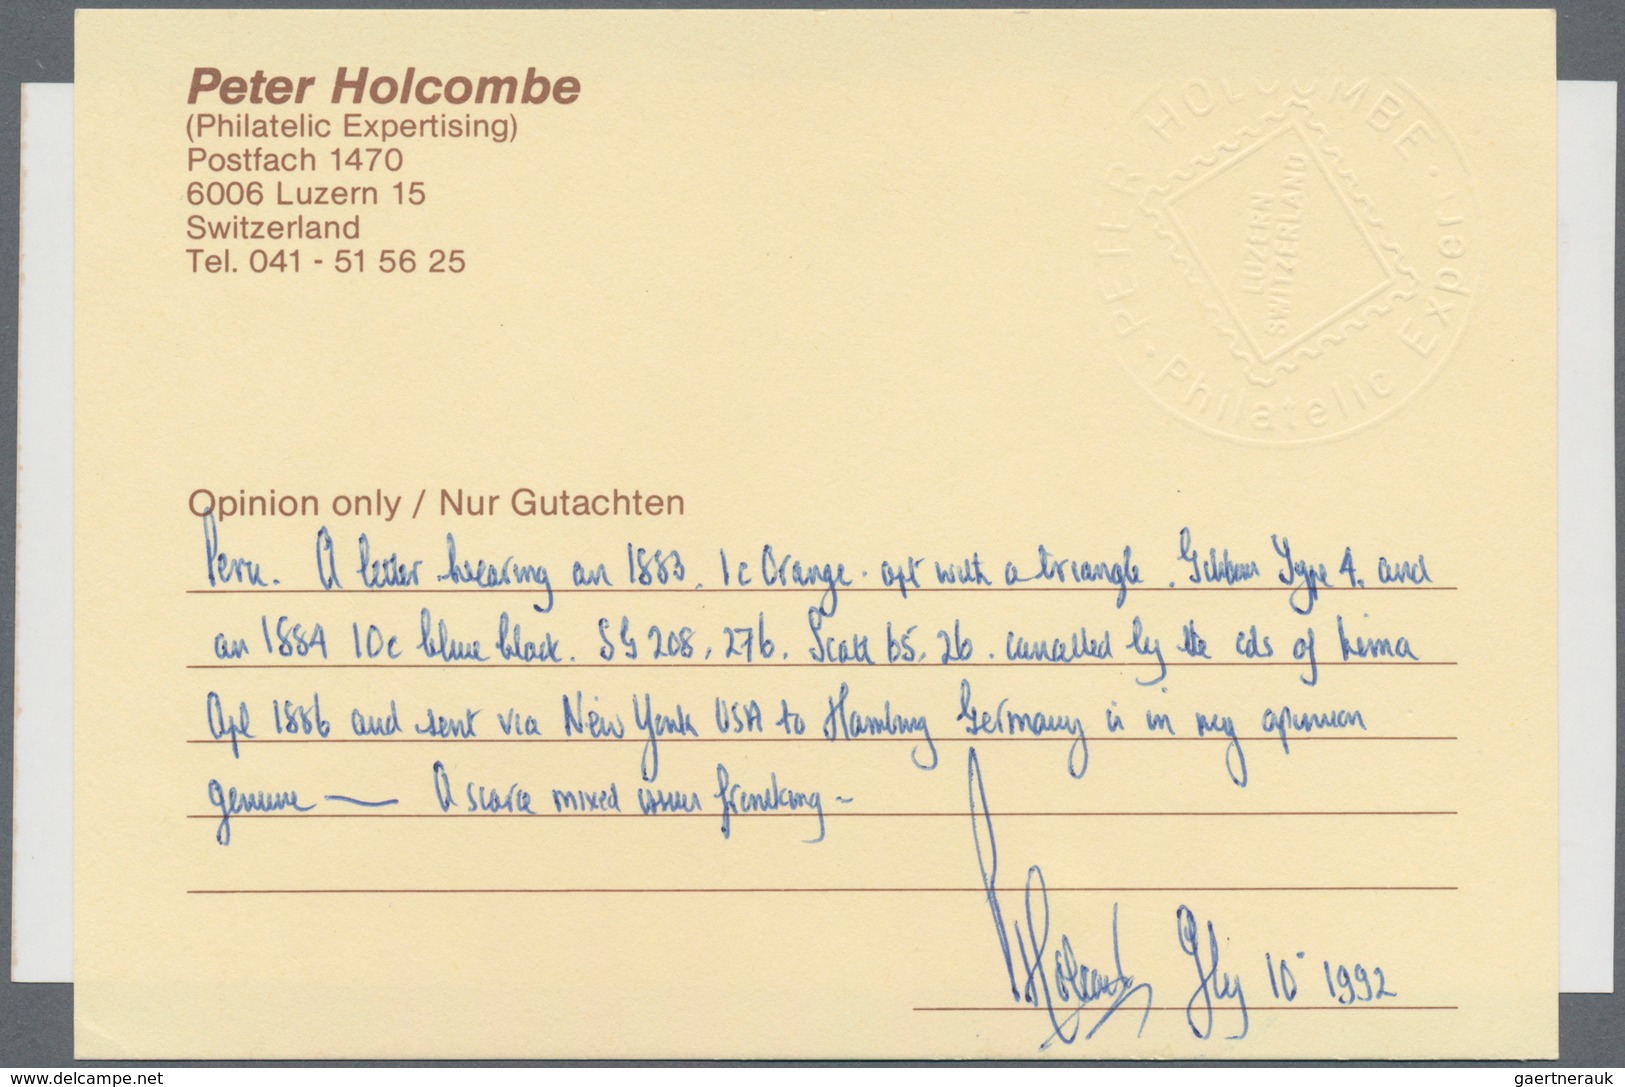 Peter Holcombe
(Philatelic Expertising)
Postfach 1470
6006 Luzern 15
Switzerland
Tel. 041 - 51 56 25
PETER HOLCOMBE · Philatelic Expertising ·
LUZERN
SWITZERLAND
Opinion only / Nur Gutachten
Peru. A letter bearing an 1883. 1c Orange. opt with a triangle. Gibbons Type 4. and
an 1884 10c blue black. SG 208, 276. Scott 65, 26. cancelled by the cds of Lima
Apl 1886 and sent via New York USA to Hamburg Germany is in my opinion
genuine — A scarce mixed issue franking –
P Holcombe July 10 1992
www.delcampe.net
gaertnerauk